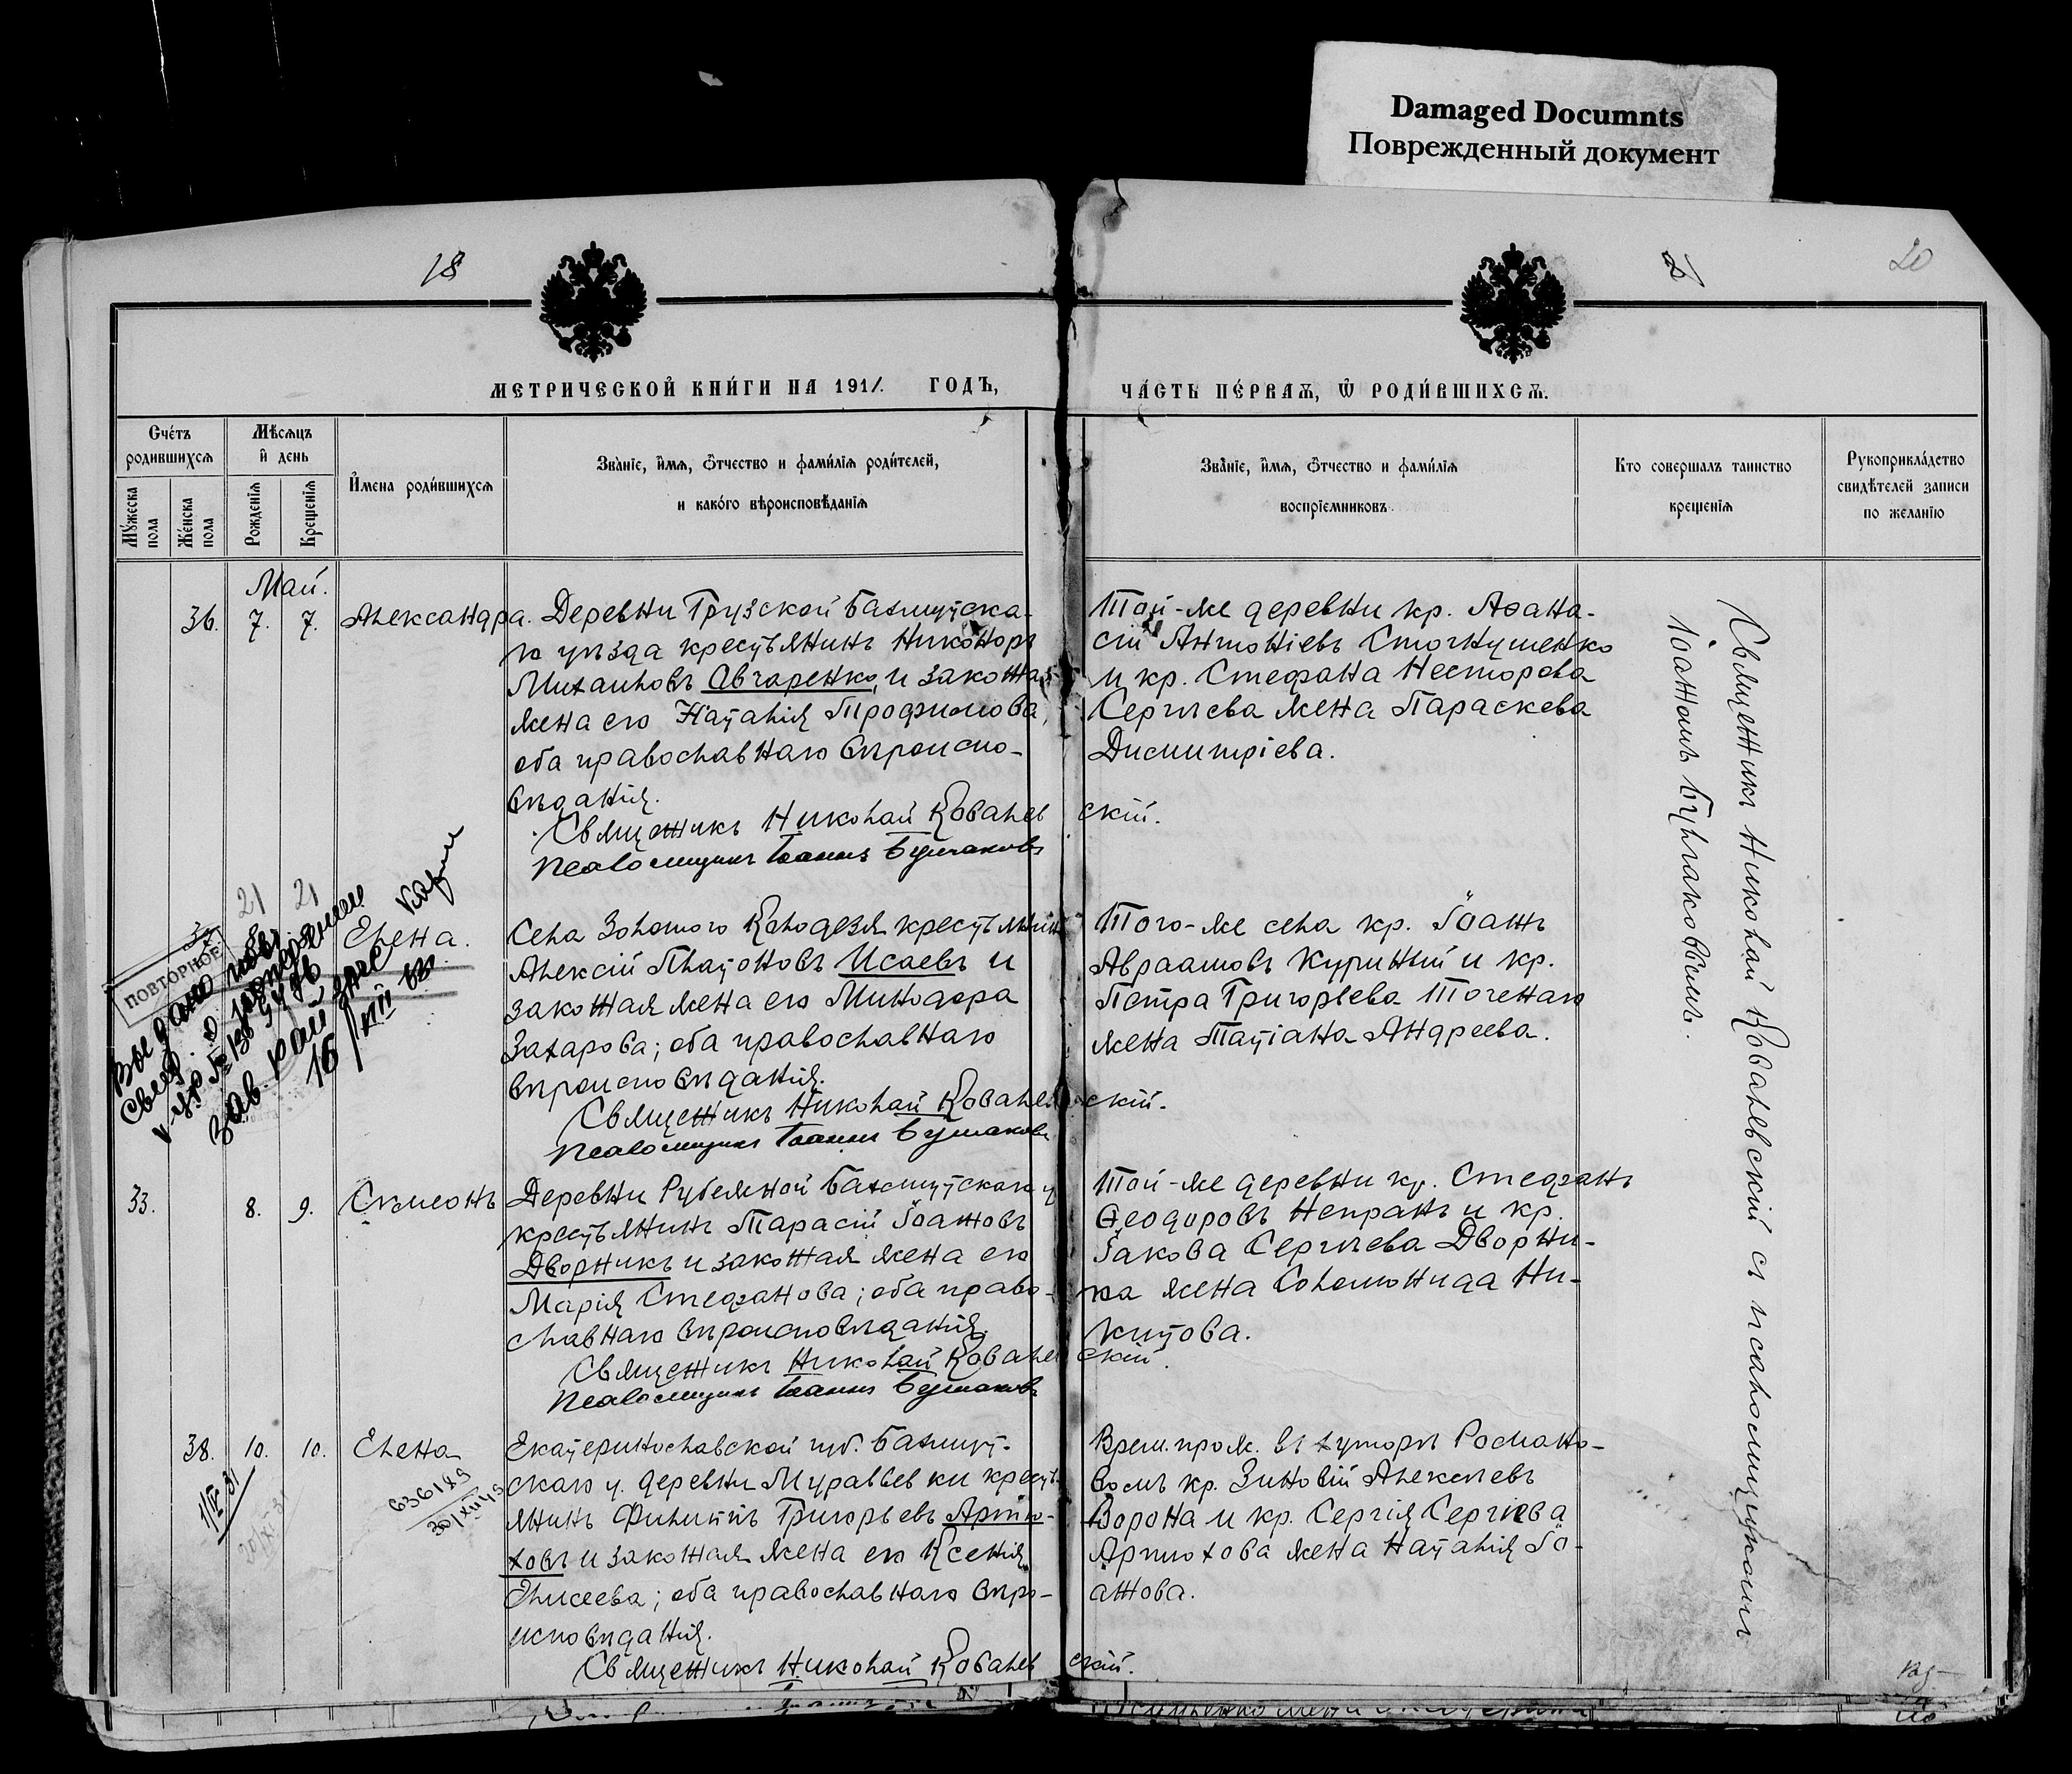 Damaged Documnts
Поврежденный документ
18
20
МЕТРИЧЕСКОЙ КНИГИ НА 1911. ГОДЪ,
ЧАСТЬ ПЕРВАЯ, Ѿ РОДИВШИХСЯ.
Счетъ родившихся
Мужеска пола
Женска пола
Мѣсяцъ и день
Рожденія
Крещенія
Имена родившихся
Званіе, имя, отчество и фамилія родителей,
и какого вѣроисповѣданія
Званіе, имя, отчество и фамилія
воспріемниковъ
Кто совершалъ таинство
крещенія
Рукоприкладство
свидѣтелей записи
по желанію
Май.
36. 7. 7. Александра.
Деревни Грузской Бахмутска-
го уѣзда крестьянинъ Никоноръ
Михаиловъ Овчаренко, и законная
жена его Наталія Трофимова,
оба православнаго вѣроиспо-
вѣданія.
Священникъ Николай Ковалевскій.
Псаломщикъ Іоаннъ Булгаковъ
Той-же деревни кр. Аѳана-
сій Антоніевъ Стогнушенко
и кр. Стефана Несторова
Сергѣева жена Параскева
Димитріева.
Священникъ Николай Ковалевскій съ псаломщикомъ
Іоанномъ Булгаковымъ.
21 21
Елена.
ПОВТОРНОЕ
Выдано
Свид. о рождении
Зав.
16/VIII
Села Золотого Колодезя крестьянинъ
Алексій Платоновъ Исаевъ и
законная жена его Минодора
Захарова; оба православнаго
вѣроисповѣданія.
Священникъ Николай Ковалевскій.
Псаломщикъ Іоаннъ Булгаковъ
Того-же села кр. Іоаннъ
Авраамовъ Куриный и кр.
Петра Григорьева Точенаго
жена Татіана Андреева.
33. 8. 9. Симеонъ
Деревни Рубежной Бахмутскаго у.
крестьянинъ Тарасій Іоанновъ
Дворникъ и законная жена его
Марія Стефанова; оба право-
славнаго вѣроисповѣданія.
Священникъ Николай Ковалевскій.
Псаломщикъ Іоаннъ Булгаковъ
Той-же деревни кр. Стефанъ
Ѳеодоровъ Непранъ и кр.
Іакова Сергѣева Дворни-
ка жена Соломонида Ни-
китова.
38. 10. 10. Елена
1/IV 31
636189
30/XII 49
Екатеринославской губ. Бахмут-
скаго у. деревни Муравьевки кресть-
янинъ Филиппъ Григорьевъ Артю-
ховъ и законная жена его Ксенія
Елисеева; оба православнаго вѣро-
исповѣданія.
Священникъ Николай Ковалевскій.
Врем. прож. въ хуторѣ Романо-
вомъ кр. Зиновій Алексѣевъ
Ворона и кр. Сергія Сергіева
Артюхова жена Наталія Іо-
аннова.